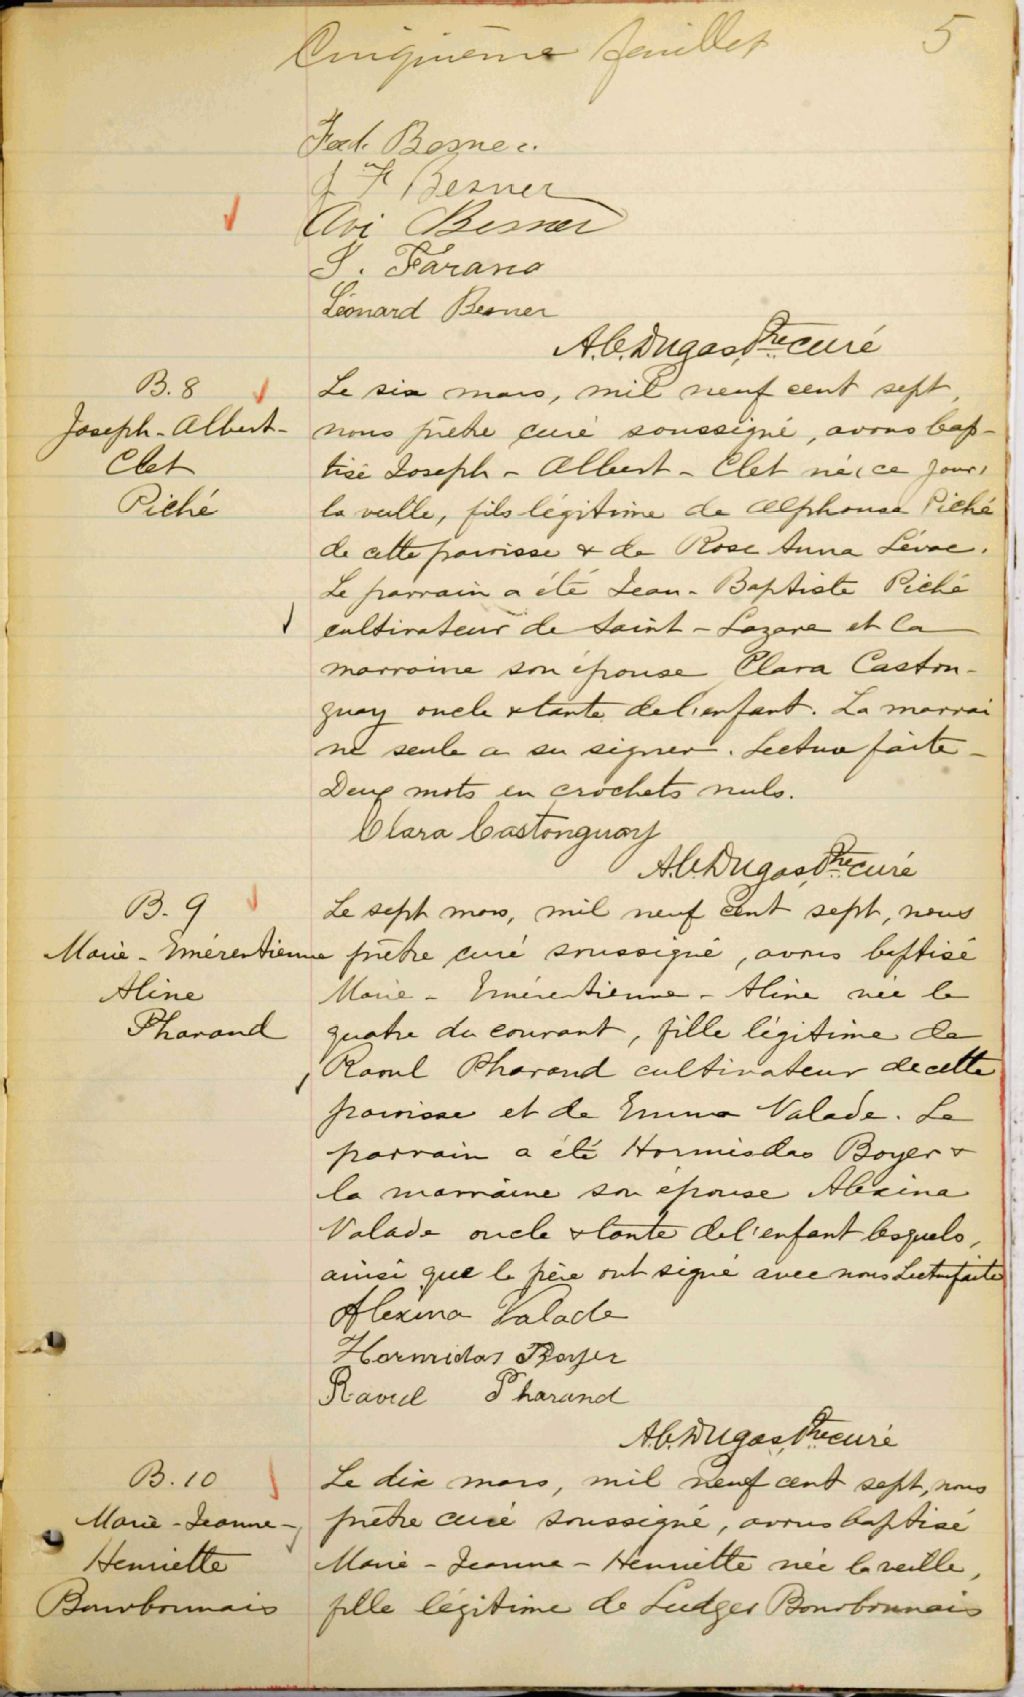 Cinquième feuillet 5
Fred. Besner.
J F Besner
Avi Besner
S. Farand
Léonard Besner
A.C. Dugas, Ptre curé
B. 8
Joseph-Albert-
Clet
Piché
Le six mars, mil neuf cent sept,
nous prêtre curé soussigné, avons bap-
tisé Joseph-Albert-Clet né (ce jour)
la veille, fils légitime de Alphonse Piché
de cette paroisse & de Rose Anna Lévac.
Le parrain a été Jean-Baptiste Piché
cultivateur de Saint-Lazare et la
marraine son épouse Clara Caston-
guay oncle & tante de l'enfant. La marrai
ne seule a su signer. Lecture faite-
Deux mots en crochets nuls.
Clara Castonguay
A.C. Dugas, Ptre curé
B. 9
Marie-Emérentienne
Aline
Pharand
Le sept mars, mil neuf cent sept, nous
prêtre curé soussigné, avons baptisé
Marie-Emérentienne-Aline née le
quatre du courant, fille légitime de
Raoul Pharand cultivateur de cette
paroisse et de Emma Valade. Le
parrain a été Hormisdas Boyer &
la marraine son épouse Alexina
Valade oncle & tante de l'enfant lesquels,
ainsi que le père ont signé avec nous Lecture faite
Alexina Valade
Hormidas Boyer
Raoul Pharand
A.C. Dugas, Ptre curé
B. 10
Marie-Jeanne-
Henriette
Bourbonnais
Le dix mars, mil neuf cent sept, nous
prêtre curé soussigné, avons baptisé
Marie-Jeanne-Henriette née la veille,
fille légitime de Ludger Bourbonnais